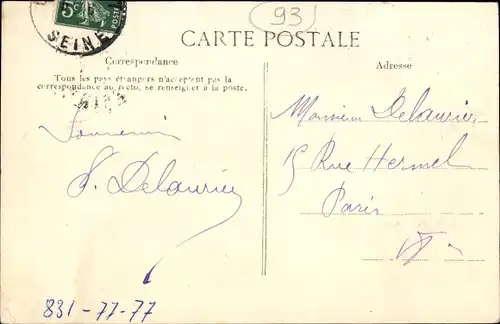 5c
POSTES
SEINE
93
CARTE POSTALE
Correspondance
Adresse
Tous les pays étrangers n'acceptent pas la
correspondance au recto, se renseigner à la poste.
Souvenir
Delaurier
Monsieur Delaurier
15 Rue Hermel
Paris
831-77-77